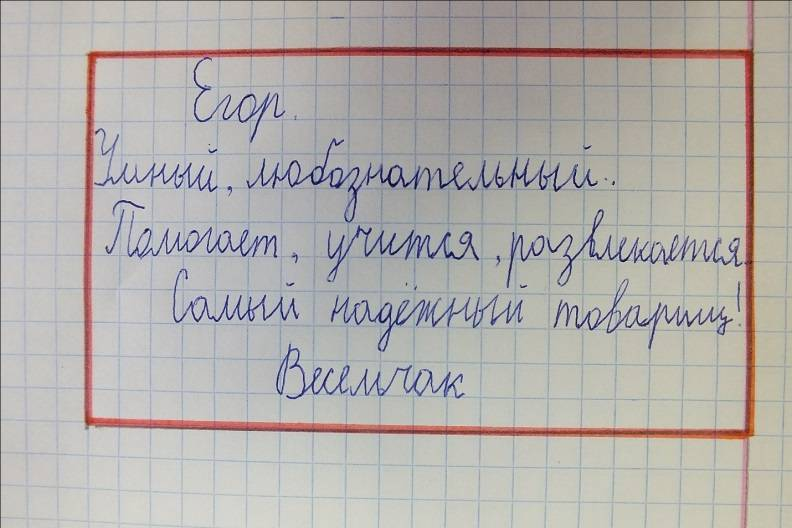 Егор.
Умный, любознательный..
Помогает, учится, развлекается.
Самый надёжный товарищ!
Весемчак